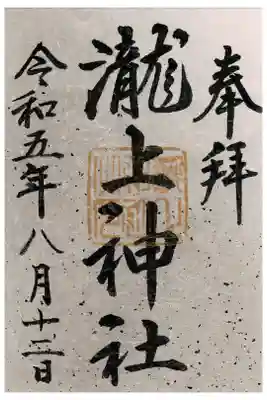 奉拝
瀧上神社
令和五年八月十三日